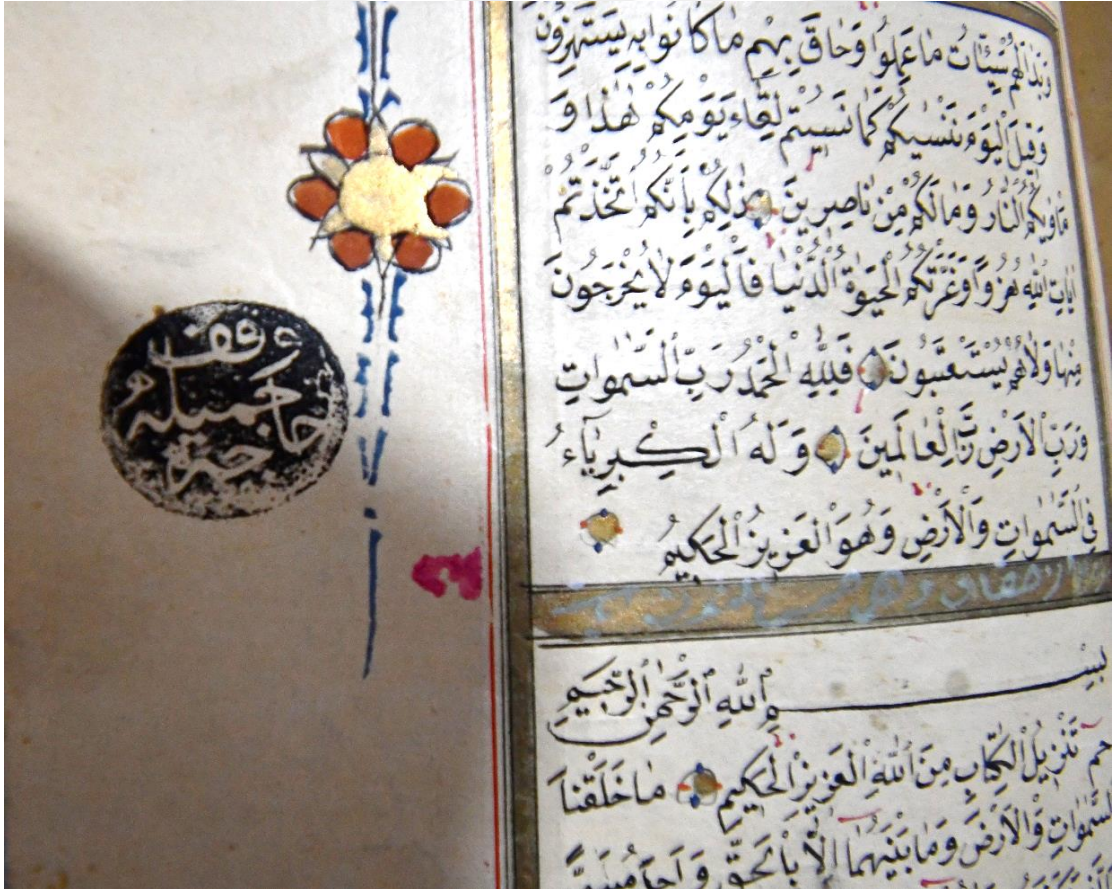 وَبَدَالَهُمْ سَيِّئَاتُ مَا عَمِلُوا وَحَاقَ بِهِمْ مَا كَانُوا بِهِ يَسْتَهْزِؤُنَ
وَقِيلَ الْيَوْمَ نَنْسٰيكُمْ كَمَا نَسِيتُمْ لِقَاءَ يَوْمِكُمْ هٰذَا وَ
مَأْوٰيكُمُ النَّارُ وَمَالَكُمْ مِنْ نَاصِرِينَ ذٰلِكُمْ بِأَنَّكُمُ اتَّخَذْتُمْ
اٰيَاتِ اللّٰهِ هُزُوًا وَغَرَّتْكُمُ الْحَيٰوةُ الدُّنْيَا فَالْيَوْمَ لَا يُخْرَجُونَ
مِنْهَا وَلَا هُمْ يُسْتَعْتَبُونَ فَلِلّٰهِ الْحَمْدُ رَبِّ السَّمٰوَاتِ
وَرَبِّ الْأَرْضِ رَبِّ الْعَالَمِينَ وَلَهُ الْكِبْرِيَاءُ
فِي السَّمٰوَاتِ وَالْأَرْضِ وَهُوَ الْعَزِيزُ الْحَكِيمُ
الاحقاف وهى
بِسْمِ اللّٰهِ الرَّحْمٰنِ الرَّحِيمِ
حم تَنْزِيلُ الْكِتَابِ مِنَ اللّٰهِ الْعَزِيزِ الْحَكِيمِ مَا خَلَقْنَا
السَّمٰوَاتِ وَالْأَرْضَ وَمَا بَيْنَهُمَا إِلَّا بِالْحَقِّ وَاَجَلٍ مُسَمًّى
وقف
جميله